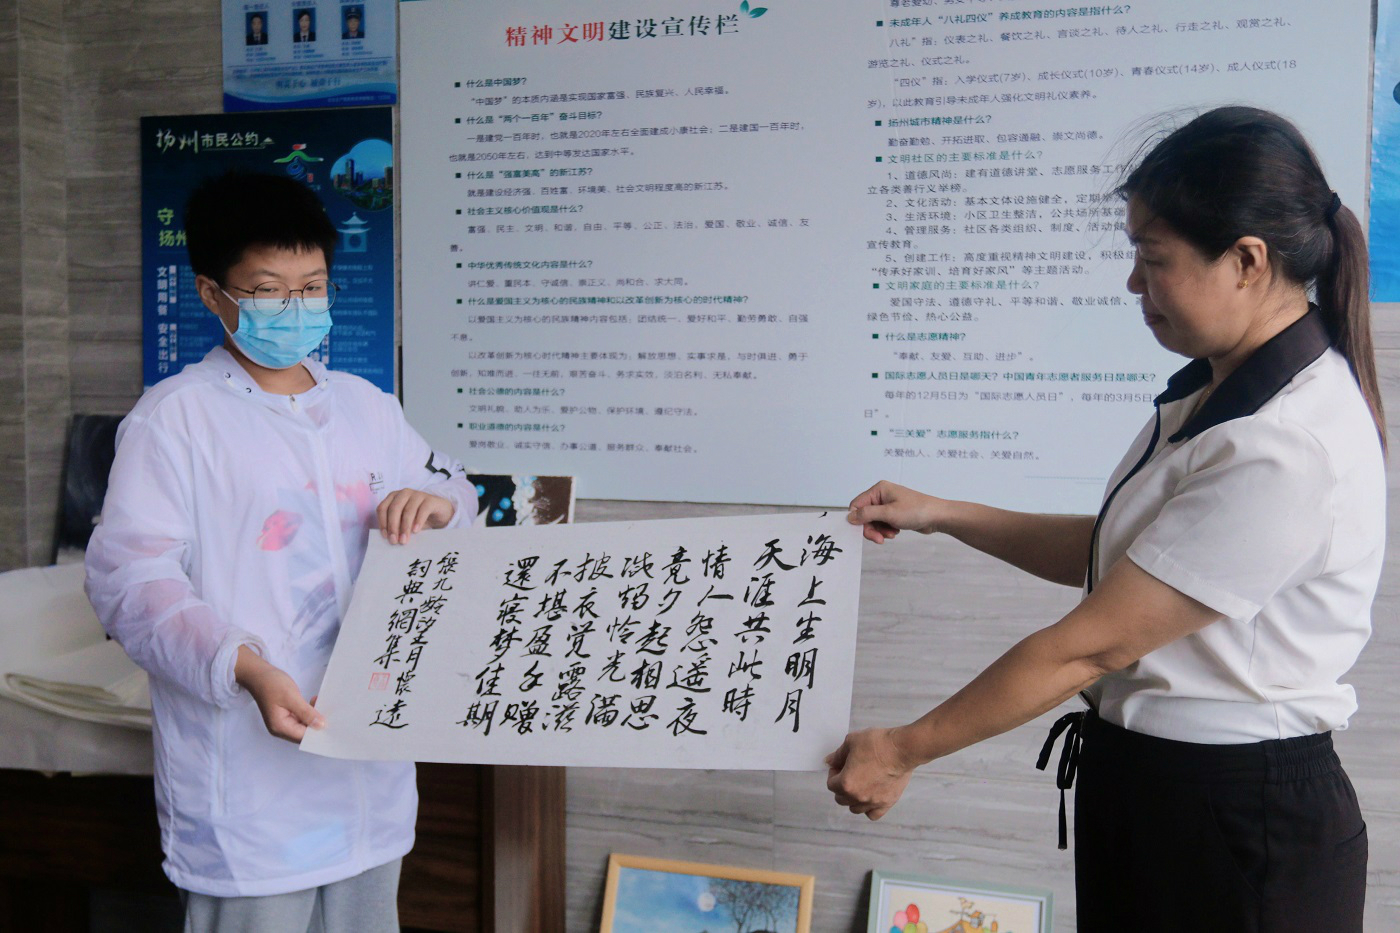 扬州市民公约
守
扬州
文明用餐
安全出行
精神文明建设宣传栏
■ 什么是中国梦？
“中国梦”的本质内涵是实现国家富强、民族复兴、人民幸福。
■ 什么是“两个一百年”奋斗目标？
一是建党一百年时，也就是2020年左右全面建成小康社会；二是建国一百年时，
也就是2050年左右，达到中等发达国家水平。
■ 什么是“强富美高”的新江苏？
就是建设经济强、百姓富、环境美、社会文明程度高的新江苏。
■ 社会主义核心价值观是什么？
富强、民主、文明、和谐、自由、平等、公正、法治、爱国、敬业、诚信、友
善。
■ 中华优秀传统文化内容是什么？
讲仁爱、重民本、守诚信、崇正义、尚和合、求大同。
■ 什么是爱国主义为核心的民族精神和以改革创新为核心的时代精神？
以爱国主义为核心的民族精神内容包括：团结统一、爱好和平、勤劳勇敢、自强
不息。
以改革创新为核心时代精神主要体现为：解放思想、实事求是、与时俱进、勇于
创新、知难而进、一往无前、艰苦奋斗、务求实效、淡泊名利、无私奉献。
■ 社会公德的内容是什么？
文明礼貌、助人为乐、爱护公物、保护环境、遵纪守法。
■ 职业道德的内容是什么？
爱岗敬业、诚实守信、办事公道、服务群众、奉献社会。
■ 未成年人“八礼四仪”养成教育的内容是指什么？
八礼”指：仪表之礼、餐饮之礼、言谈之礼、待人之礼、行走之礼、观赏之礼、
游览之礼、仪式之礼。
“四仪”指：入学仪式(7岁)、成长仪式(10岁)、青春仪式(14岁)、成人仪式(18
岁)，以此教育引导未成年人强化文明礼仪素养。
■ 扬州城市精神是什么？
勤奋勤勉、开拓进取、包容通融、崇文尚德。
■ 文明社区的主要标准是什么？
1、道德风尚：建有道德讲堂、志愿服务工作
立各类善行义举榜。
2、文化活动：基本文体设施健全，定期举
3、生活环境：小区卫生整洁，公共场所基础
4、管理服务：社区各类组织、制度、活动健
宣传教育。
5、创建工作：高度重视精神文明建设，积极组
“传承好家训、培育好家风”等主题活动。
■ 文明家庭的主要标准是什么？
爱国守法、道德守礼、平等和谐、敬业诚信、
绿色节俭、热心公益。
■ 什么是志愿精神？
“奉献、友爱、互助、进步”。
■ 国际志愿人员日是哪天？中国青年志愿者服务日是哪天？
每年的12月5日为“国际志愿人员日”，每年的3月5日为
日”。
■ “三关爱”志愿服务指什么？
关爱他人、关爱社会、关爱自然。
海上生明月
天涯共此時
情人怨遥夜
竟夕起相思
烛怜光满
披衣觉露滋
不堪盈手赠
還寝梦佳期
九龄 月懷遠